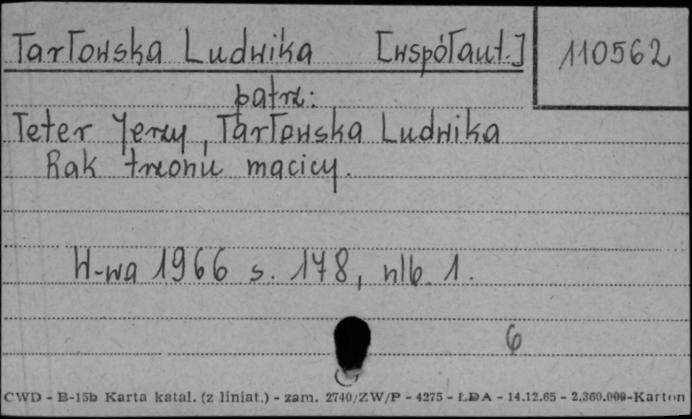 Tarłowska Ludwika [współaut.] 110562
patrz:
Teter Jerzy, Tarłowska Ludwika
Rak trzonu macicy.
W-wa 1966 s. 178, nlb. 1.
6
CWD - B-15b Karta katal. (z liniat.) - zam. 2740/ZW/P - 4275 - ŁDA - 14.12.65 - 2.360.000-Karton